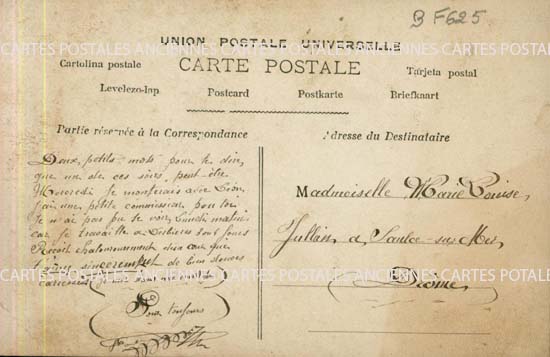 B F625
UNION POSTALE UNIVERSELLE
CARTES POSTALES ANCIENNES CARTES POSTALES ANCIENNES CARTES POSTALES
Cartolina postale CARTE POSTALE Tarjeta postal
Levelezo-lap Postcard Postkarte Briefkaart
Partie réservée à la Correspondance Adresse du Destinataire
Deux petits mots pour te dire
que un de ces soirs peut être
Mercredi je monterais avec Léon
j'ai une petite commission pour toi
je n'ai pas pu te voir Lundi matin
car je travaille a
Reçoit chez que
de bien douces
caresses
Pour toujours
Mademoiselle Marie Louise
Jullian a Saulce-sur-
Drome
CARTES POSTALES ANCIENNES CARTES POSTALES ANCIENNES CARTES POSTALES